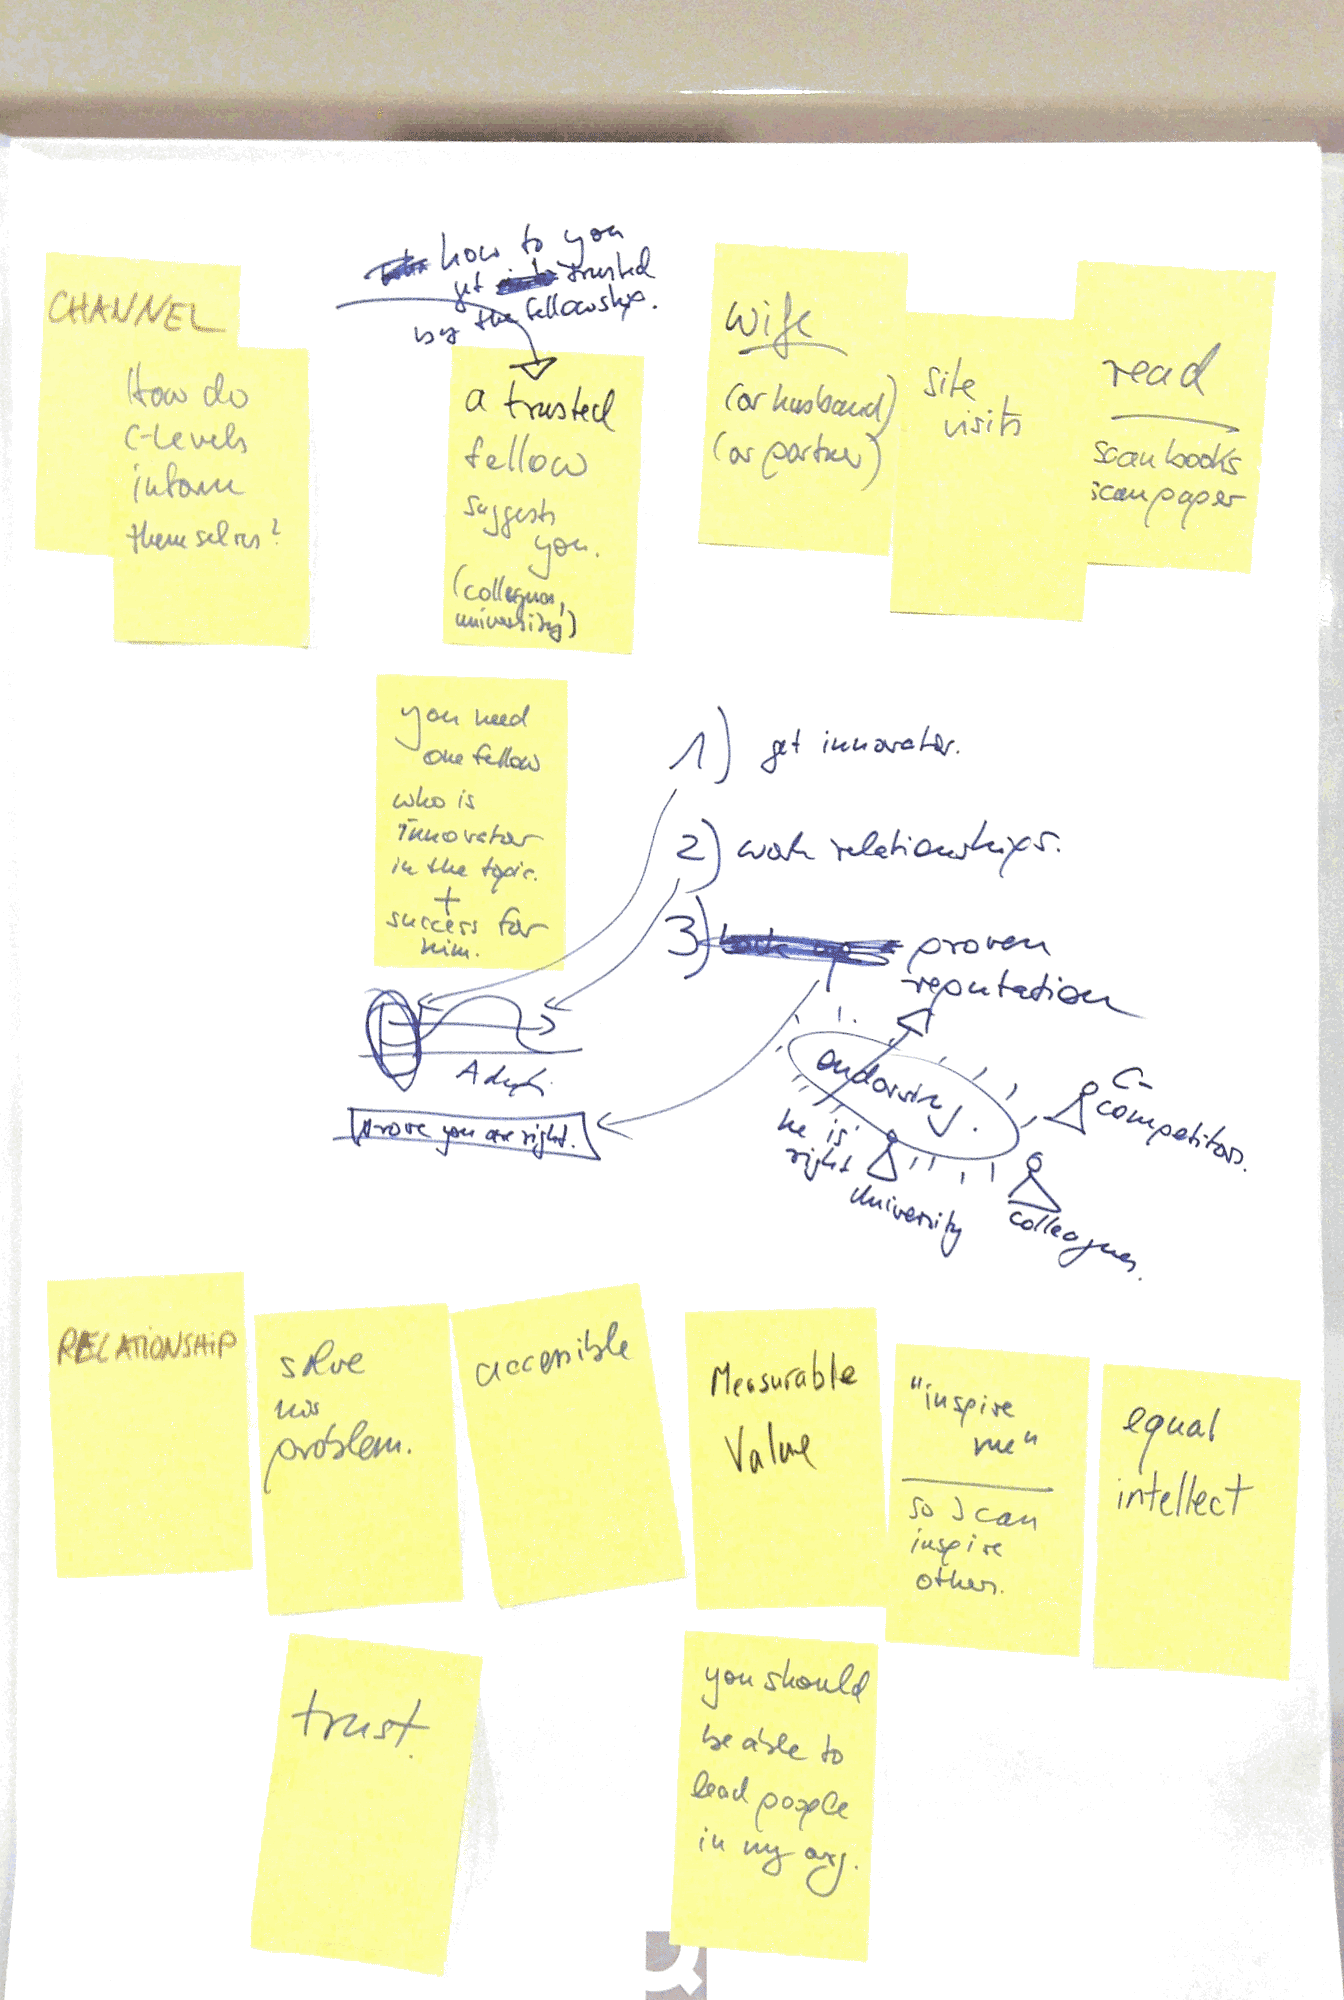 CHANNEL
How do
C-Levels
inform
themselves?
how to you
get trusted
by the fellowship.
a trusted
fellow
suggests
you.
(colleagues,
university)
wife
(or husband)
(or partner)
site
visits
read
scan books
scan paper
you need
one fellow
who is
innovator
in the topic.
+
success for
him.
1) get innovator.
2) work relationships.
3) proven
reputation
Prove you are right.
endorsing.
he is
right
university
colleagues.
C-
competitors.
RELATIONSHIP
solve
his
problem.
accessible
Measurable
Value
"inspire
me"
so I can
inspire
others.
equal
intellect
trust.
you should
be able to
lead people
in my org.